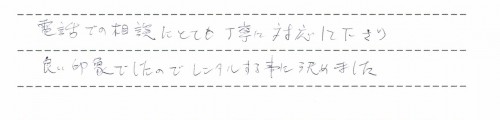 電話での相談にとても丁寧に対応して下さり
良い印象でしたのでレンタルする事に決めました